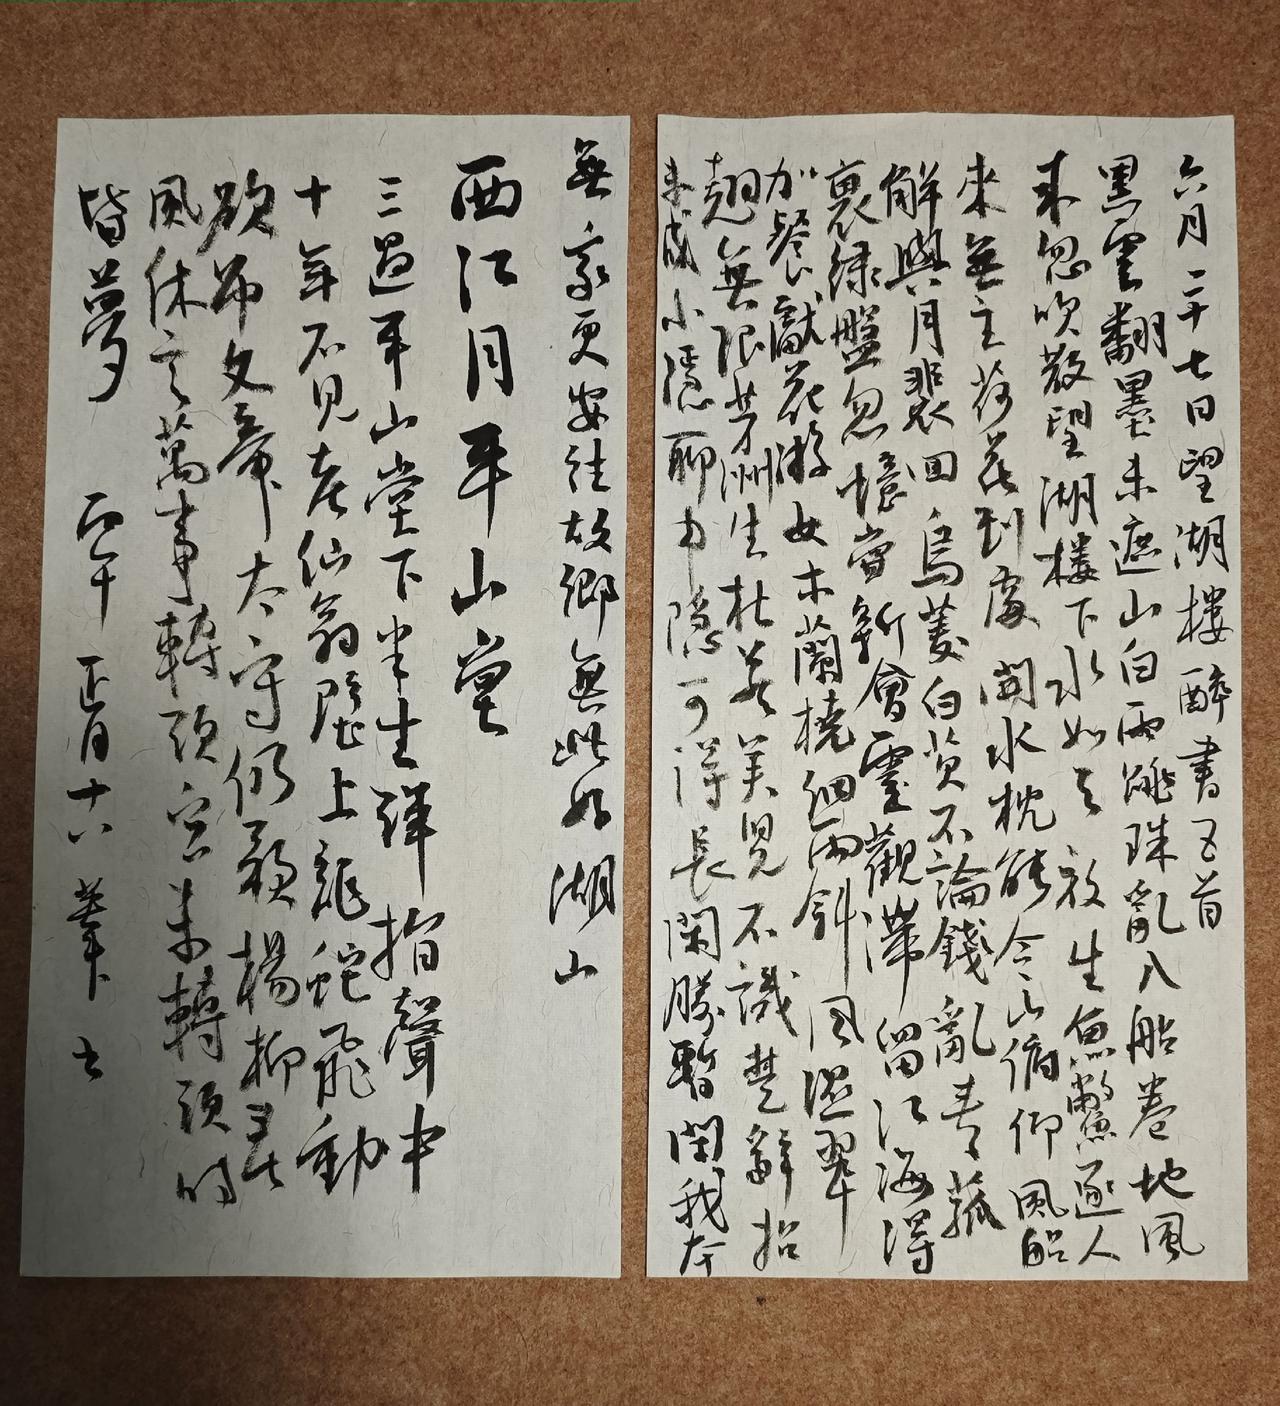 六月二十七日望湖樓醉書五首
黑雲翻墨未遮山白雨跳珠亂入船卷地風
來忽吹散望湖樓下水如天放生魚鱉逐人
來無主荷花到處開水枕能令山俯仰風船
解與月裴回烏菱白芡不論錢亂青菰
裹綠盤忽憶嘗新會靈觀滯留江海得
加餐獻花游女木蘭橈細雨斜風濕翠
翹無限芳洲生杜若吳兒不識楚辭招
未成小隱聊中隱可得長閑勝暫閑我本
無家更安往故鄉無此好湖山
西江月平山堂
三過平山堂下半生彈指聲中
十年不見老仙翁壁上龍蛇飛動
欲吊文章太守仍歌楊柳春
風休言萬事轉頭空未轉頭時
皆夢 丙午正月十六